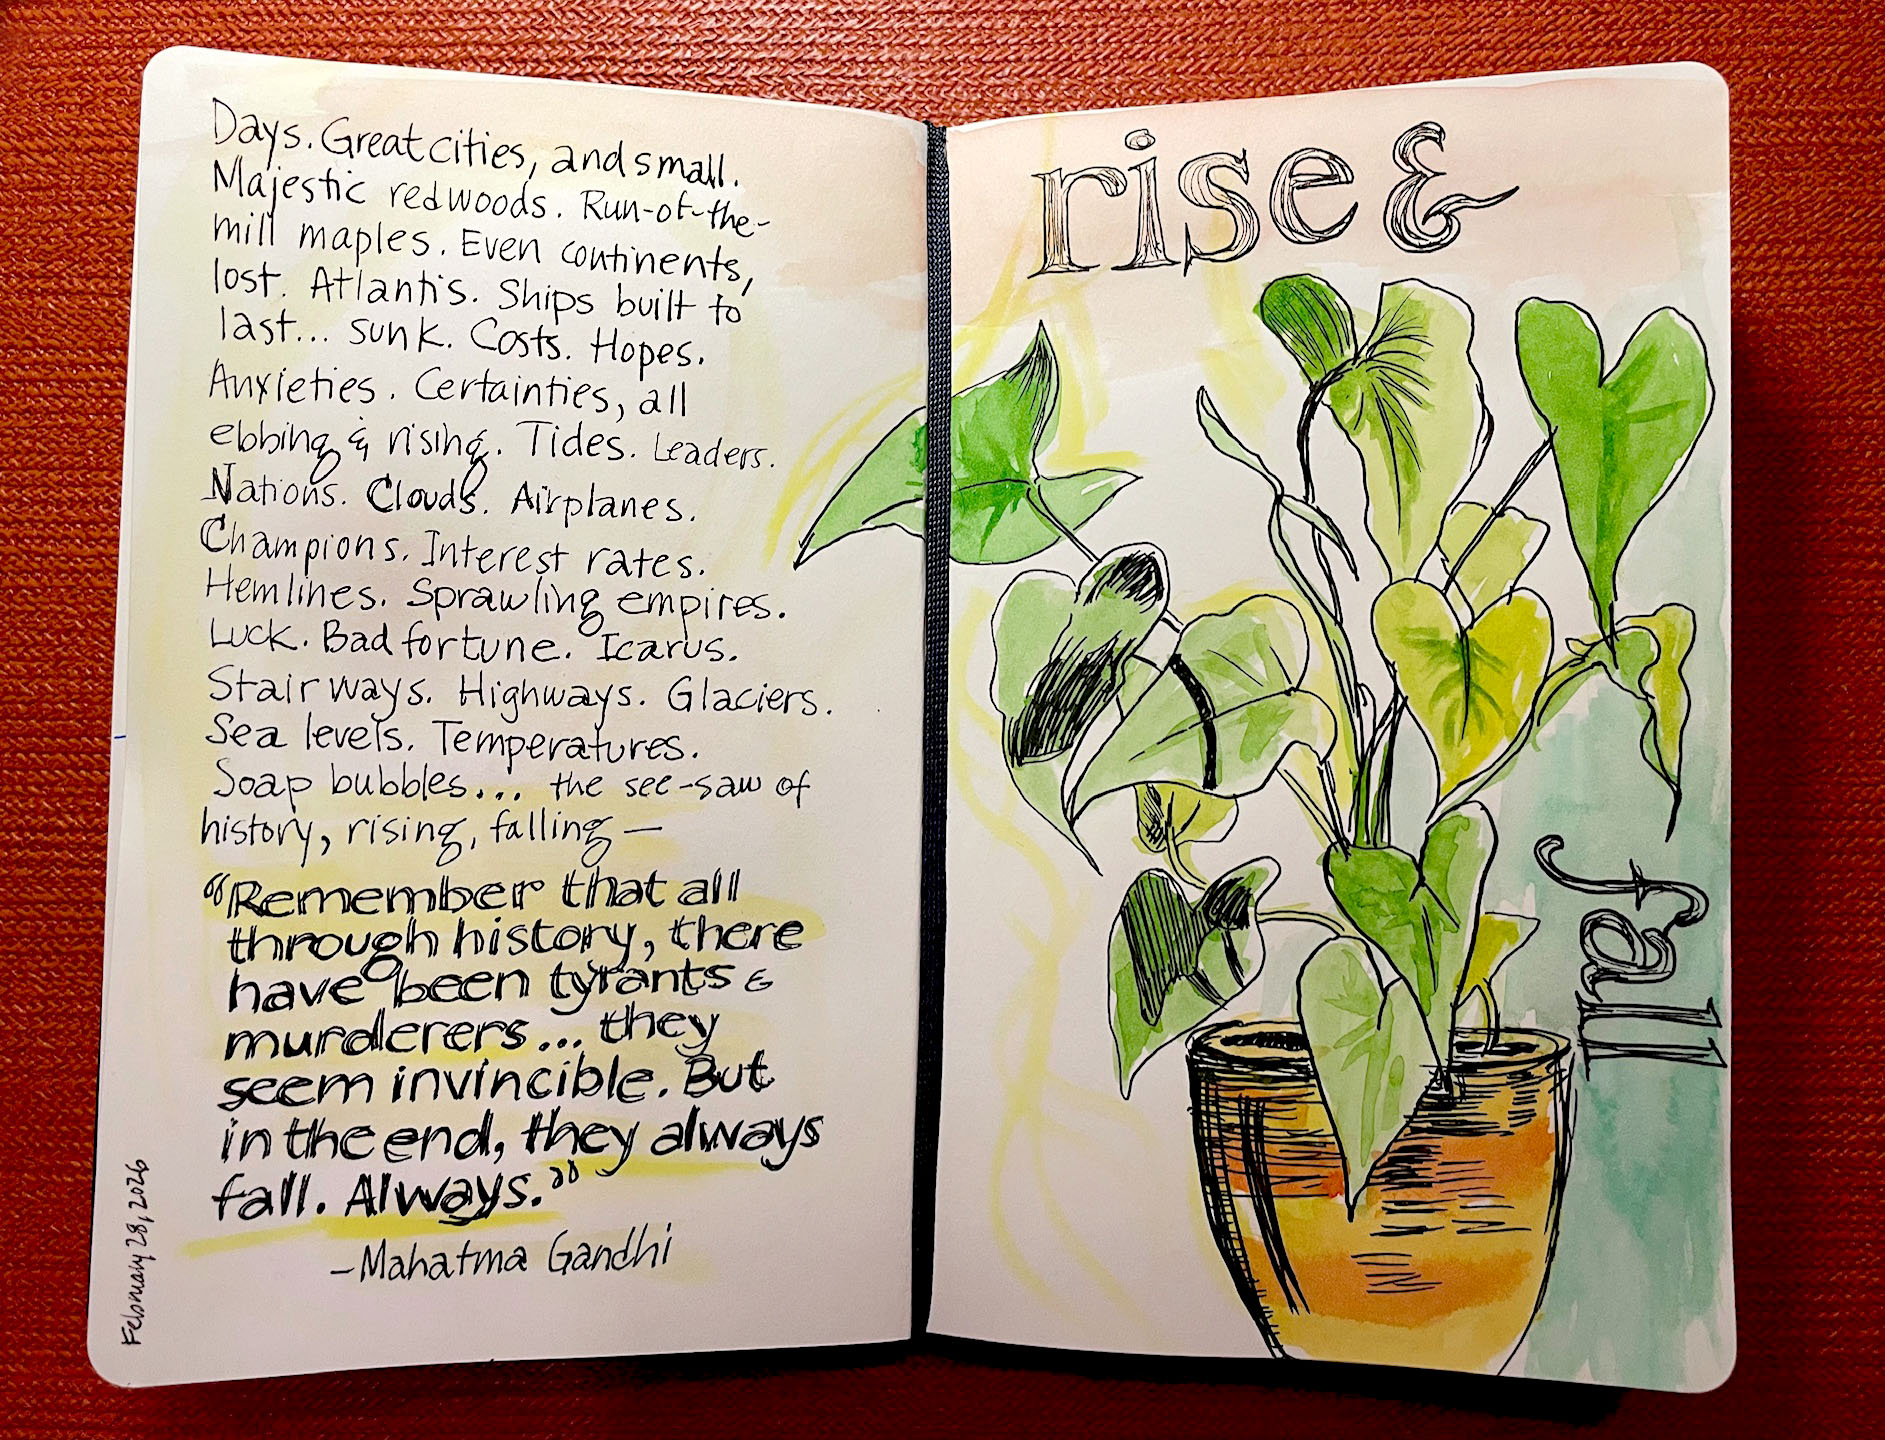 Days. Great cities, and small.
Majestic redwoods. Run-of-the-
mill maples. Even continents,
lost. Atlantis. Ships built to
last... sunk. Costs. Hopes.
Anxieties. Certainties, all
ebbing & rising. Tides. Leaders.
Nations. Clouds. Airplanes.
Champions. Interest rates.
Hemlines. Sprawling empires.
Luck. Bad fortune. Icarus.
Stairways. Highways. Glaciers.
Sea levels. Temperatures.
Soap bubbles... the see-saw of
history, rising, falling —
"Remember that all
through history, there
have been tyrants &
murderers... they
seem invincible. But
in the end, they always
fall. Always."
- Mahatma Gandhi
February 28, 2026
rise &
fall